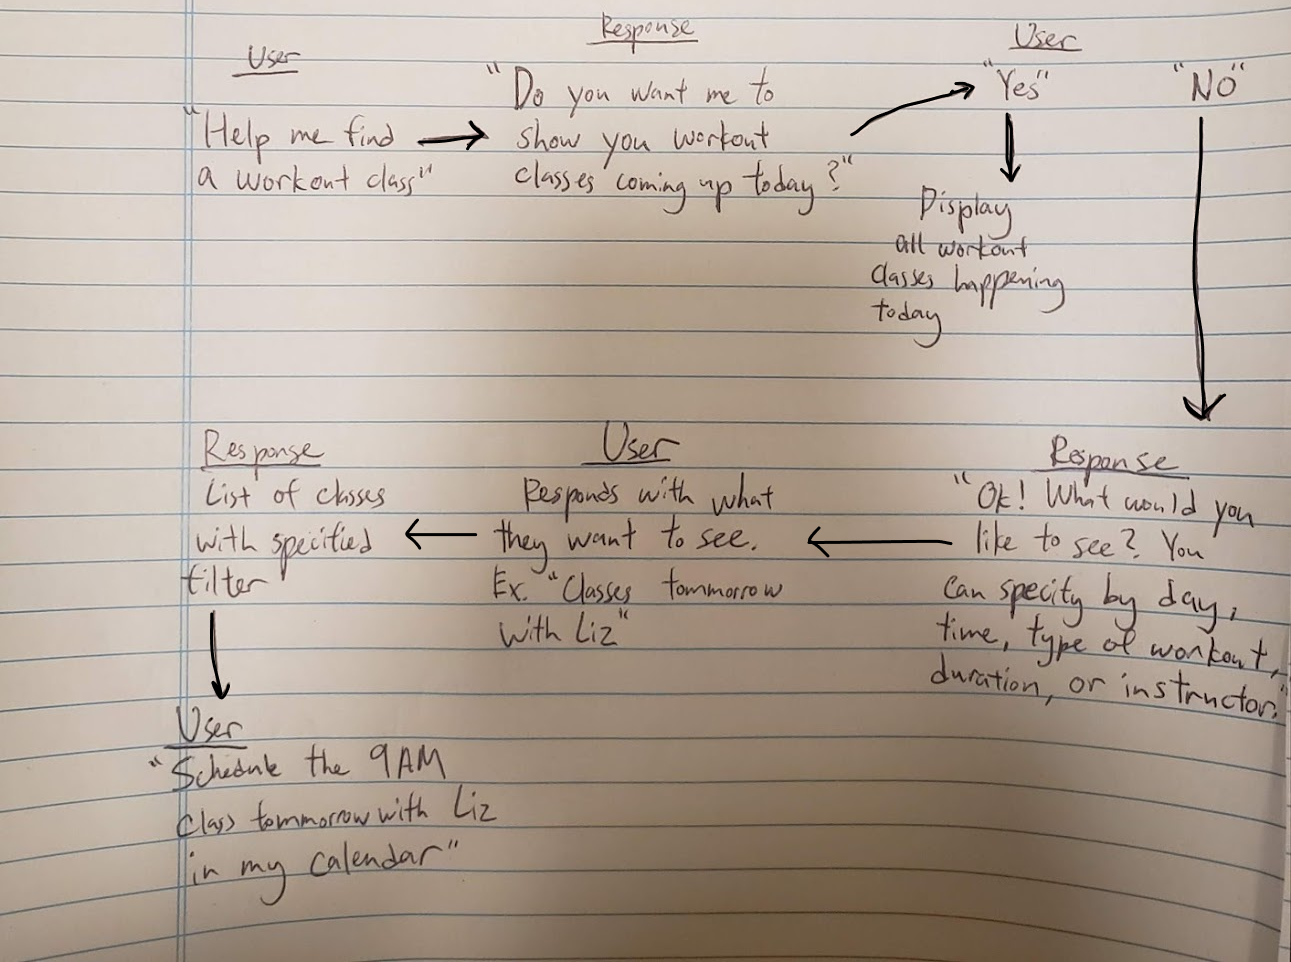 User
"Help me find
a workout class"
Response
"Do you want me to
show you workout
classes coming up today?"
User
"Yes"
"NO"
Display
all workout
classes happening
today
Response
"Ok! What would you
like to see? You
can specify by day,
time, type of workout,
duration, or instructor."
User
Responds with what
they want to see.
Ex. "Classes tommorrow
with Liz"
Response
List of classes
with specified
filter
User
"Schedule the 9AM
class tommorrow with Liz
in my calendar"